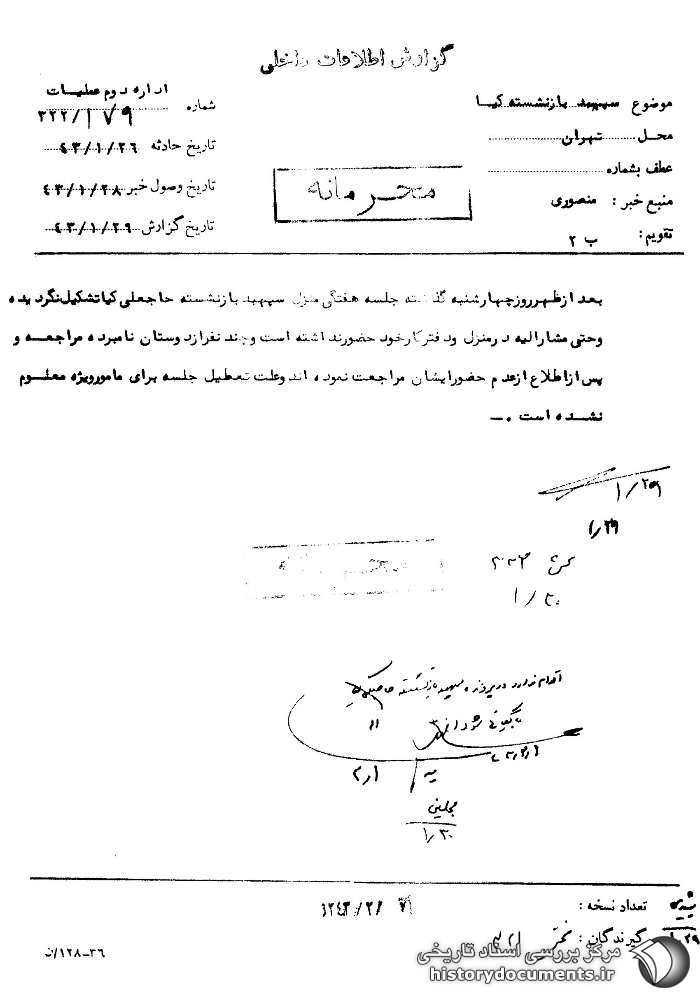 گزارش اطلاعات داخلی
اداره دوم عملیات
شماره ۳۲۲/۱۷۹
تاریخ حادثه ۴۳/۱/۲۶
تاریخ وصول خبر ۴۳/۱/۲۸
تاریخ گزارش ۴۳/۱/۲۹
موضوع سپهبد بازنشسته کیا
محل تهران
عطف بشماره
منبع خبر : منصوری
تقویم : ب ۲
محرمانه
بعد ازظهر روز چهارشنبه گذشته جلسه هفتگی منزل سپهبد بازنشسته حاجعلی کیا تشکیل نگردیده
وحتی مشارالیه درمنزل ودفترکارخود حضورنداشته است وچند نفرازدوستان نامبرده مراجعه و
پس ازاطلاع ازعدم حضورایشان مراجعت نموده اند وعلت تعطیل جلسه برای مامورویژه معلوم
نشده است .ــ
۱/۲۹
۱/۲۹
۱/۳۰
محرمانه
اقدام ندارد در پرونده سپهبد بازنشسته حاجعلی کیا
بایگانی شود
۱/۳۰
تعداد نسخه :
گیرندگان :
۱۲۸-۳۶/ن
مرکز بررسی اسناد تاریخی
historydocuments.ir